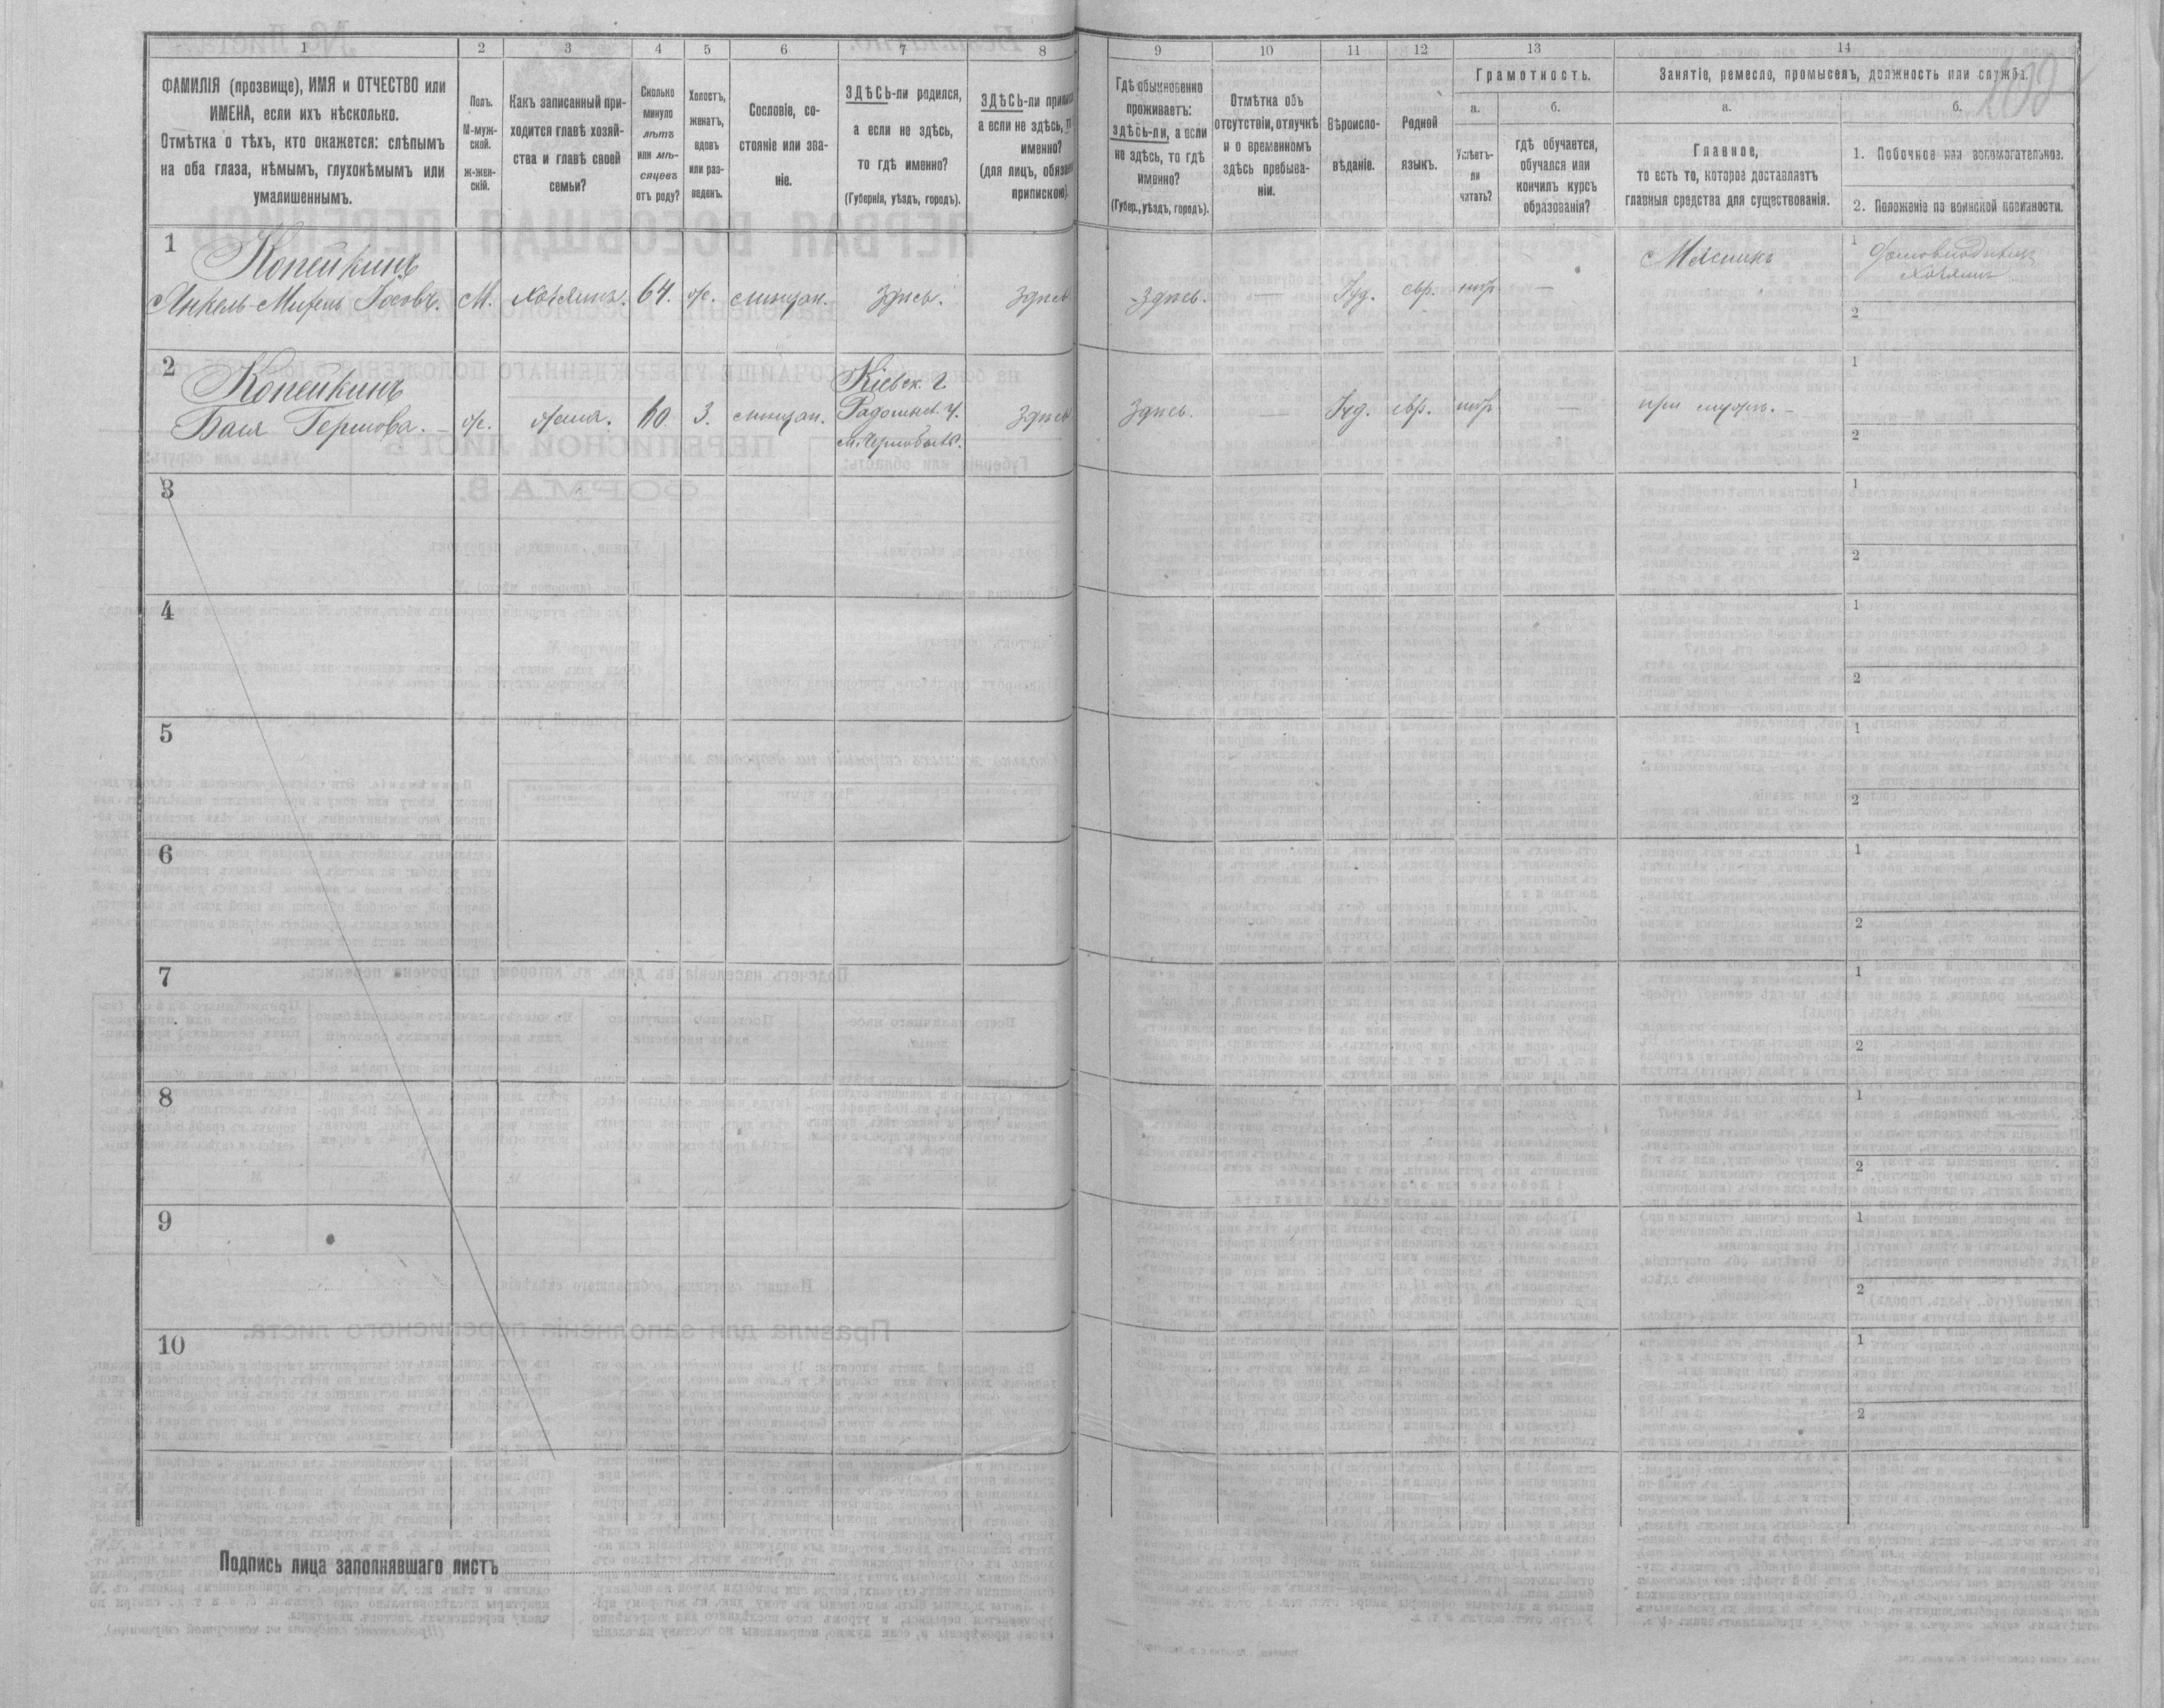 1 2 3 4 5 6 7 8 9 10 11 12 13 14
ФАМИЛІЯ (прозвище), ИМЯ и ОТЧЕСТВО или
ИМЕНА, если ихъ нѣсколько.
Отмѣтка о тѣхъ, кто окажется: слѣпымъ
на оба глаза, нѣмымъ, глухонѣмымъ или
умалишеннымъ.
Полъ.
М-муж-
ской.
ж-жен-
скій.
Какъ записанный при-
ходится главѣ хозяй-
ства и главѣ своей
семьи?
Сколько
минуло
лѣтъ
или мѣ-
сяцевъ
отъ роду?
Холостъ,
женатъ,
вдовъ
или раз-
веденъ.
Сословіе, со-
стояніе или зва-
ніе.
ЗДѢСЬ-ли родился,
а если не здѣсь,
то гдѣ именно?
(Губернія, уѣздъ, городъ).
ЗДѢСЬ-ли
а если не здѣсь,
именно?
(для лицъ,
припискою).
Гдѣ обыкновенно
проживаетъ:
здѣсь-ли, а если
не здѣсь, то гдѣ
именно?
(Губер., уѣздъ, городъ).
Отмѣтка объ
отсутствіи, отлучкѣ
и о временномъ
здѣсь пребыва-
ніи.
Вѣроиспо-
вѣданіе.
Родной
языкъ.
Грамотность.
а. б.
Умѣетъ-
ли
читать?
гдѣ обучается,
обучался или
кончилъ курсъ
образованія?
Занятіе, ремесло, промыселъ, должность или служба.
а. б.
209
Главное,
то есть то, которое доставляетъ
главныя средства для существованія.
1. Побочное или вспомогательное.
2. Положеніе по воинской повинности.
1
Копейкинъ
Янкель Іосовъ. М. хозяинъ. 64. ж. мѣщан. Здѣсь. Здѣсь Здѣсь. — Іуд. евр. — Мясникъ
1
хозяинъ
2
2
Копейкинъ
Бася Гершова. ж. жена. 60 З. мѣщан.
Кіевск. г.
Радомысл. у.
м. Чернобыль.
Здѣсь Здѣсь. — Іуд. евр. — при мужѣ.
1
2
3
1
2
4
1
2
5
1
2
6
1
2
7
1
2
8
1
2
9
1
2
10
1
2
Подпись лица заполнявшаго листъ